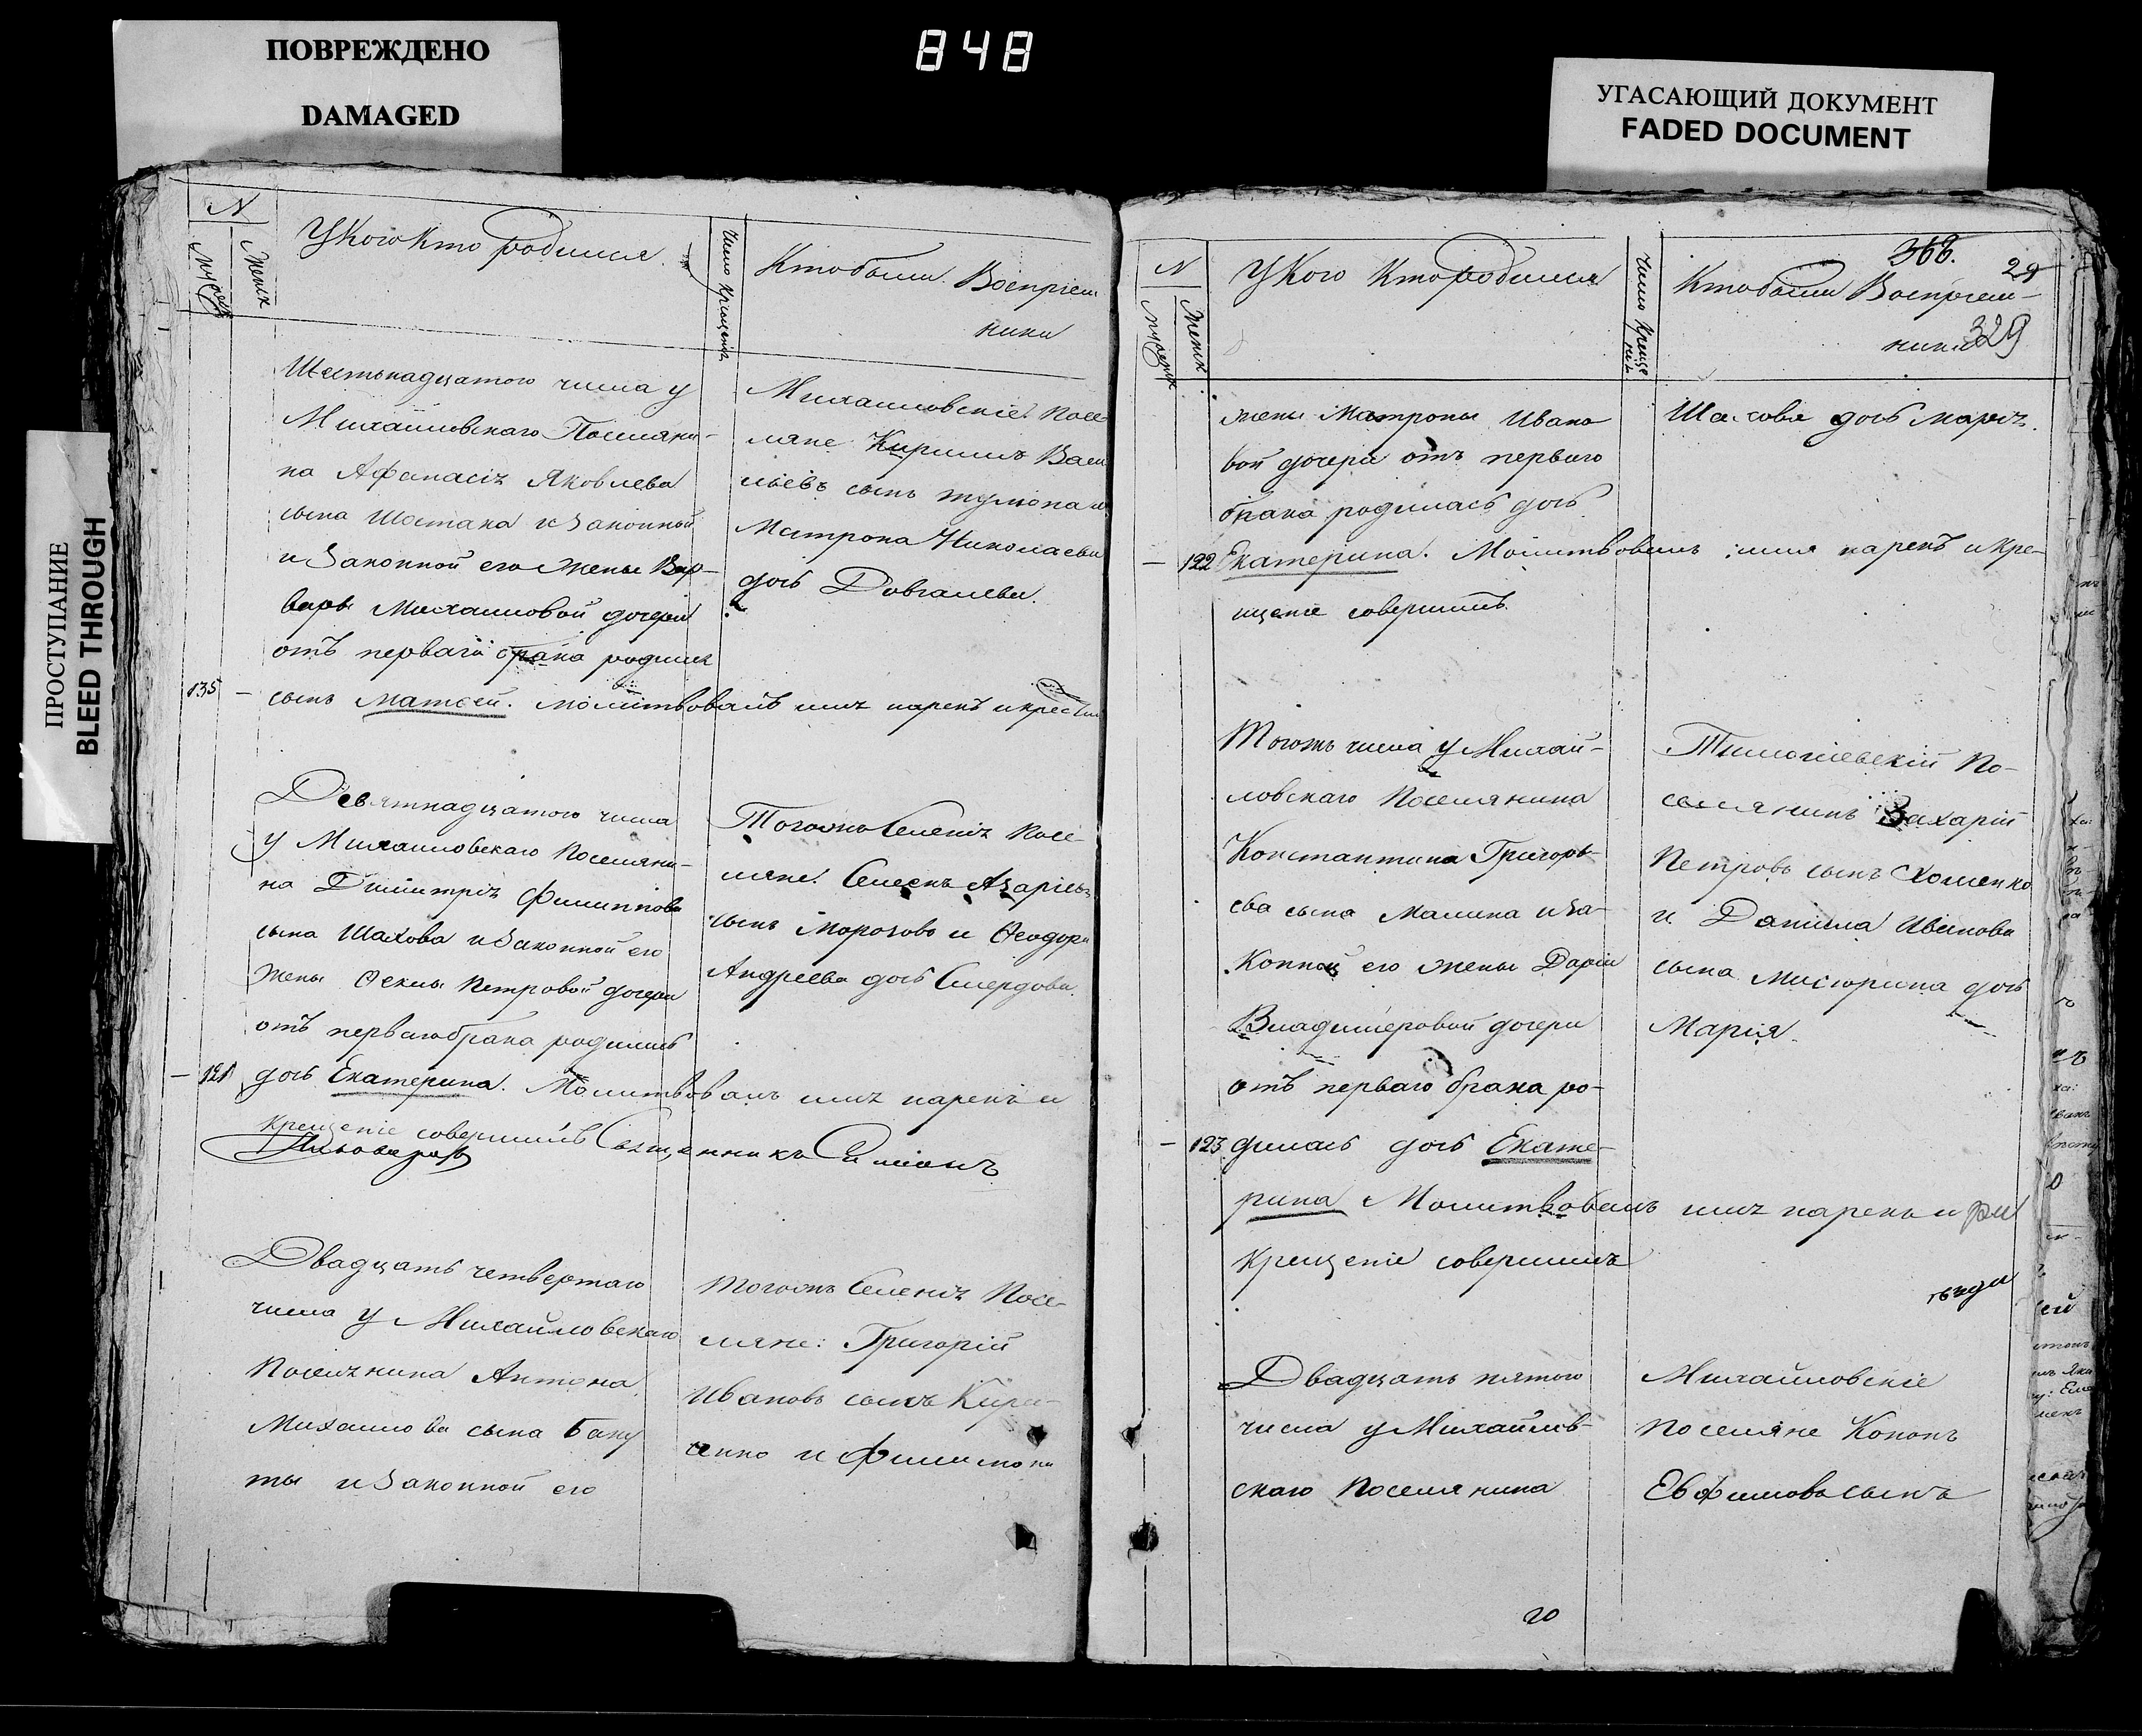 ПОВРЕЖДЕНО
DAMAGED
848
УГАСАЮЩИЙ ДОКУМЕНТ
FADED DOCUMENT
ПРОСТУПАНИЕ
BLEED THROUGH
N
Мужеск
Женск
У Кого Кто родился
Число крещенія
Кто были Воспріем
ники
Шестьнадцатого числа у
Михайловскаго Поселяни-
на Афанасія Яковлева
сына Шостака и Законный
и Законной его жены Вар-
вары Михаиловой дочери
отъ перваго брака родился
135 - сынъ Матѳей. Молитвовалъ имя нарекъ и крестил
Михаиловскіе Посе
ляне Кирилъ Васи
льевъ сынъ
Матрона Николаева
дочь Довгалева.
Девятнадцатого числа
у Михаиловскаго Поселяни-
на Димитрія Филиппова
сына Шахова и Законной его
жены Ѳеклы Петровой дочери
отъ перваго брака родилась
- 121 дочь Екатерина. Молитвовалъ имя нарекъ и
крещеніе совершилъ Священникъ Симеонъ
Тогожъ Селенія Посе
ляне: Семенъ Азаріевъ
сынъ Морозовъ и Ѳеодора
Андреева дочь Смердова.
Двадцать четвертаго
числа у Михайловскаго
Поселянина Антона
Михаилова сына Баку
ты и Законной его
Тогожъ Селенія Посе-
ляне: Григорій
Ивановъ сынъ Кири-
ченко и Филимона
N
Мужеск
Женск
У Кого Кто родился
Число Креще
нія
368.
29
Кто были Воспріем-
ники
329
жены Матроны Ивано
вой дочери отъ перваго
брака родилась дочь
- 122 Екатерина. Молитвовалъ имя нарекъ и кре-
щеніе совершилъ
Шахова дочь Марія.
Тогожъ числа у Михай-
ловскаго Поселянина
Константина Григорь-
ева сына Малина и За-
конной его жены Даріи
Владимеровой дочери
отъ перваго брака ро-
- 123 дилась дочь Екате-
рина Молитвовалъ имя нарекъ и
крещеніе совершилъ
Тимошевскій По-
селянинъ Захарій
Петровъ сынъ Хоменко
и Данила Иванова
сына Мисюрина дочь
Марія.
Двадцать пятого
числа у Михайлов-
скаго Поселянина
Михайловскіе
поселяне Кононъ
Евфимовъ сынъ
20